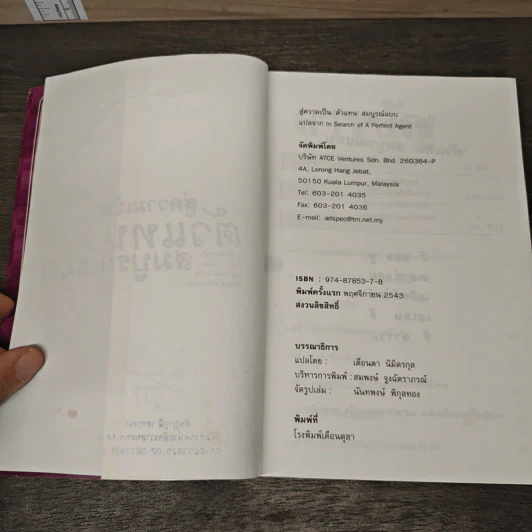 สู่ความเป็น 'ตัวแทน' สมบูรณ์แบบ
แปลจาก In Search of A Perfect Agent
จัดพิมพ์โดย
บริษัท ATCE Ventures Sdn. Bhd. 260364-P
4A, Lorong Hang Jebat,
50150 Kuala Lumpur, Malaysia
Tel: 603-201 4035
Fax: 603-201 4036
E-mail: adspec@tm.net.my
ISBN : 974-87853-7-8
พิมพ์ครั้งแรก พฤศจิกายน 2543
สงวนลิขสิทธิ์
บรรณาธิการ
แปลโดย : เดือนดา นิมิตรกุล
บริหารการพิมพ์ : สมพงษ์ รุ่งฉัตราภรณ์
จัดรูปเล่ม : นันทพงษ์ พิกุลทอง
พิมพ์ที่
โรงพิมพ์เดือนตุลา